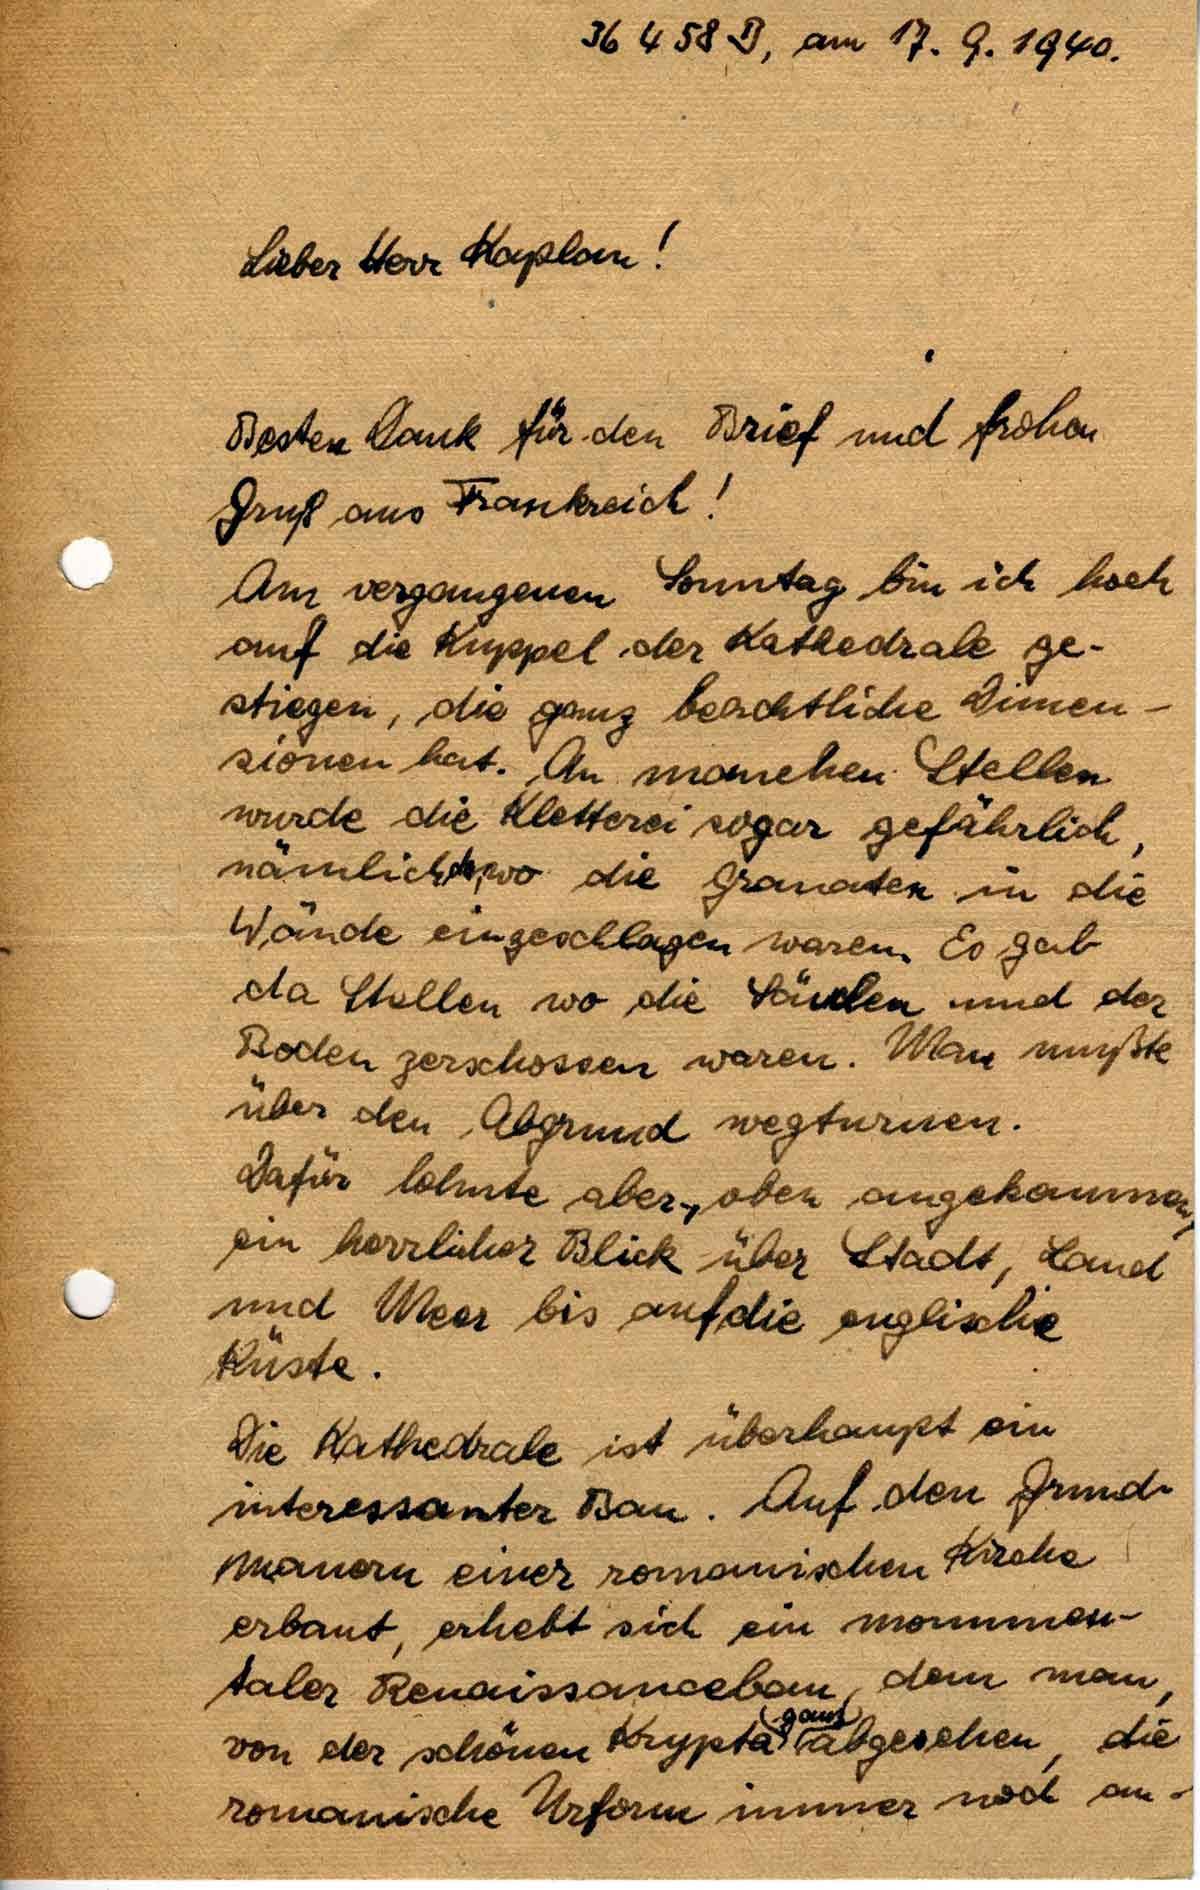 36 458 B, am 17. 9. 1940.
Lieber Herr Kaplan!
Besten Dank für den Brief und frohen
Gruß aus Frankreich!
Am vergangenen Sonntag bin ich hoch
auf die Kuppel der Kathedrale ge-
stiegen, die ganz beachtliche Dimen-
sionen hat. An manchen Stellen
wurde die Kletterei sogar gefährlich,
nämlich, wo die Granaten in die
Wände eingeschlagen waren. Es gab
da Stellen wo die Säulen und der
Boden zerschossen waren. Man mußte
über den Abgrund wegturnen.
Dafür lohnte aber, oben angekommen,
ein herrlicher Blick über Stadt, Land
und Meer bis auf die englische
Küste.
Die Kathedrale ist überhaupt ein
interessanter Bau. Auf den Grund-
mauern einer romanischen Kirche
erbaut, erhebt sich ein monumen-
taler Renaissancebau, dem man,
von der schönen Krypta (ganz) abgesehen, die
romanische Urform immer noch an-